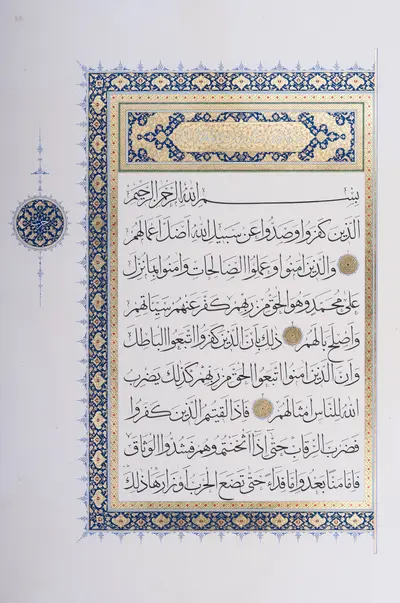 بسم الله الرحمن الرحيم
الذين كفروا وصدوا عن سبيل الله اضل اعمالهم
والذين امنوا وعملوا الصالحات وامنوا بما نزل
على محمد وهو الحق من ربهم كفر عنهم سيئاتهم
واصلح بالهم ذلك بان الذين كفروا اتبعوا الباطل
وان الذين امنوا اتبعوا الحق من ربهم كذلك يضرب
الله للناس امثالهم فاذا لقيتم الذين كفروا
فضرب الرقاب حتى اذا اثخنتموهم فشدوا الوثاق
فاما منا بعد واما فداء حتى تضع الحرب اوزارها ذلك